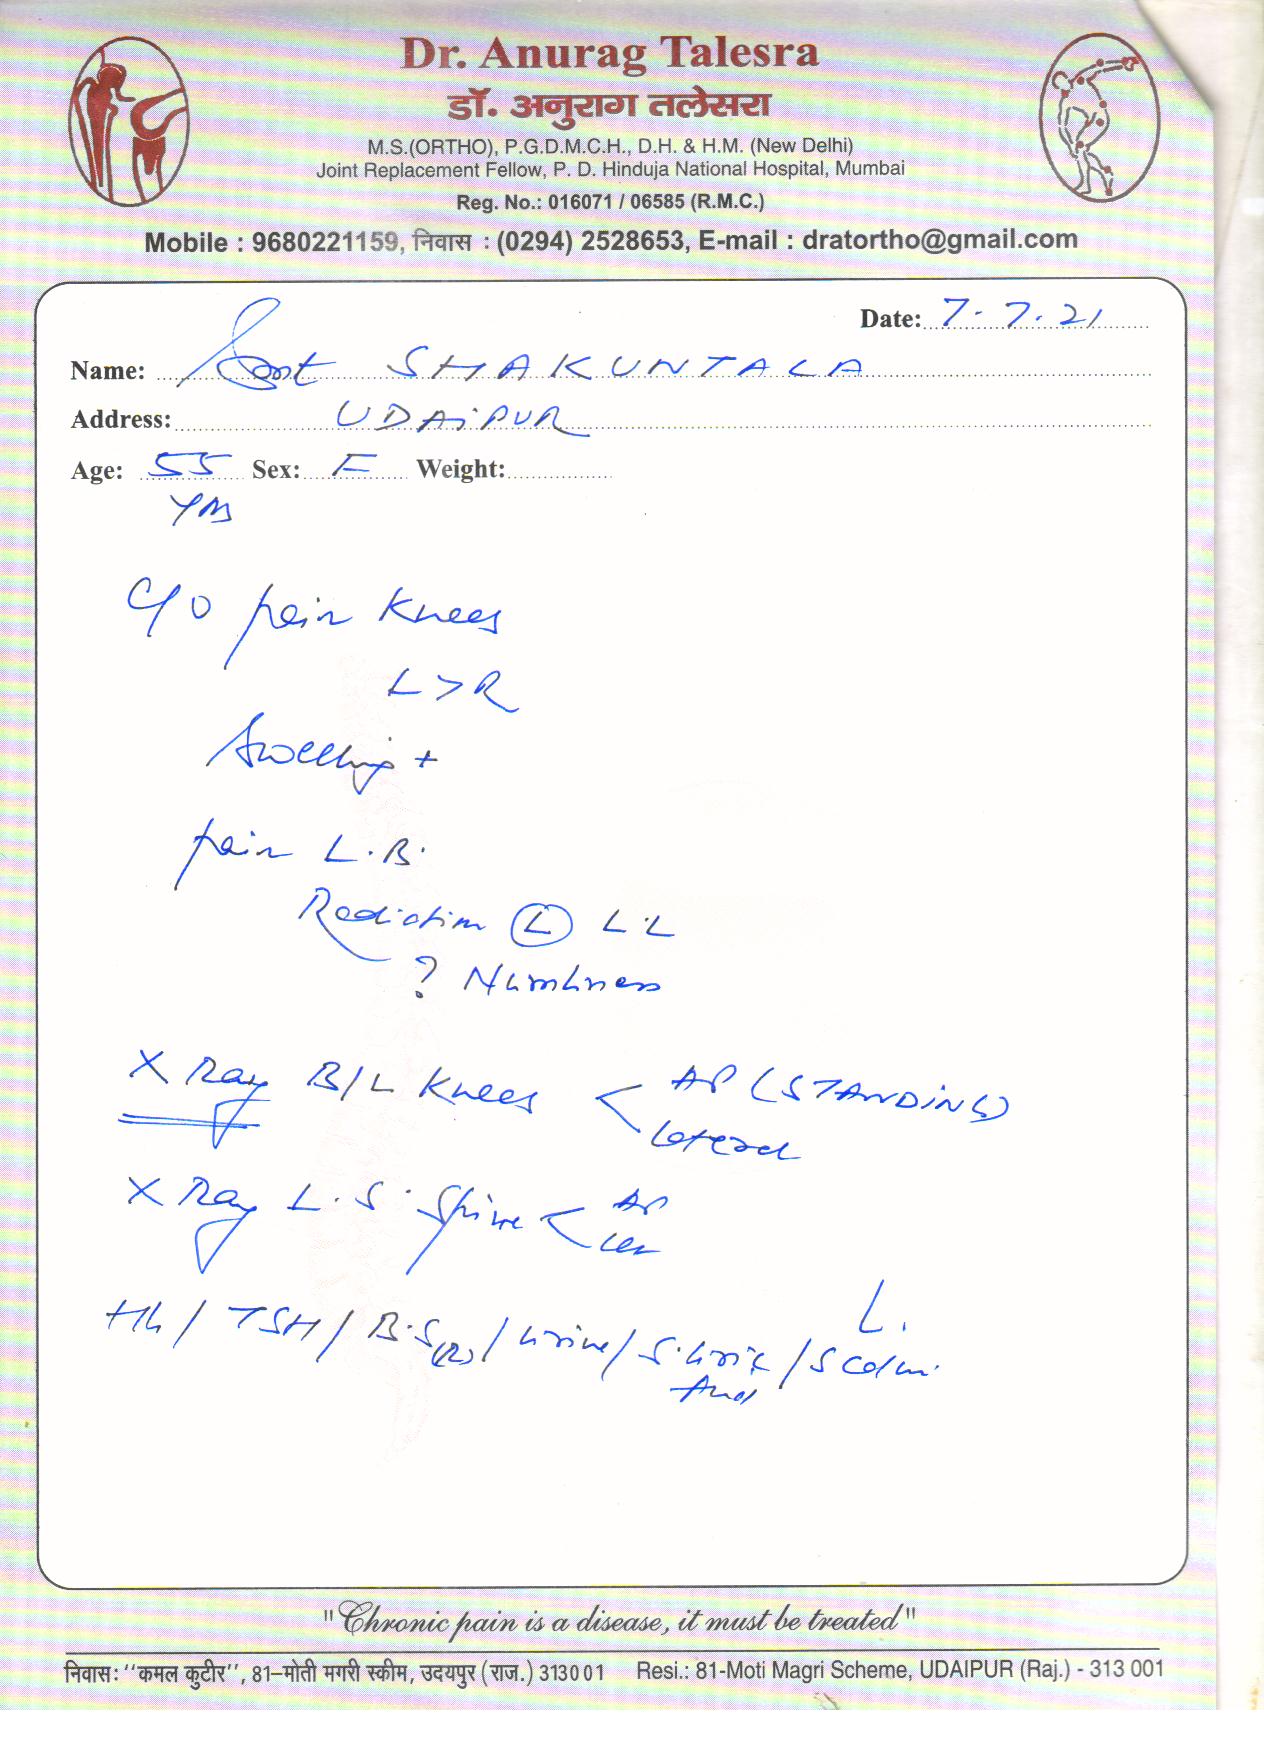 Dr. Anurag Talesra
डॉ. अनुराग तलेसरा
M.S.(ORTHO), P.G.D.M.C.H., D.H. & H.M. (New Delhi)
Joint Replacement Fellow, P. D. Hinduja National Hospital, Mumbai
Reg. No.: 016071 / 06585 (R.M.C.)
Mobile : 9680221159, निवास : (0294) 2528653, E-mail : dratortho@gmail.com
Date: 7.7.21
Name: Smt SHAKUNTALA
Address: UDAiPUR
Age: 55 Sex: F Weight:
Yrs
C/O pain Knees
L > R
Swelling +
pain L.B.
Radiation (L) L L
? Numbness
X Ray B/L Knees < AP (STANDING)
lateral
X Ray L.S. Spine < AP
Hb / TSH / B.S(R) / Urine / S. Uric / S Calm.
Acid
"Chronic pain is a disease, it must be treated"
निवास: ''कमल कुटीर'', 81–मोती मगरी स्कीम, उदयपुर (राज.) 313001 Resi.: 81-Moti Magri Scheme, UDAIPUR (Raj.) - 313 001